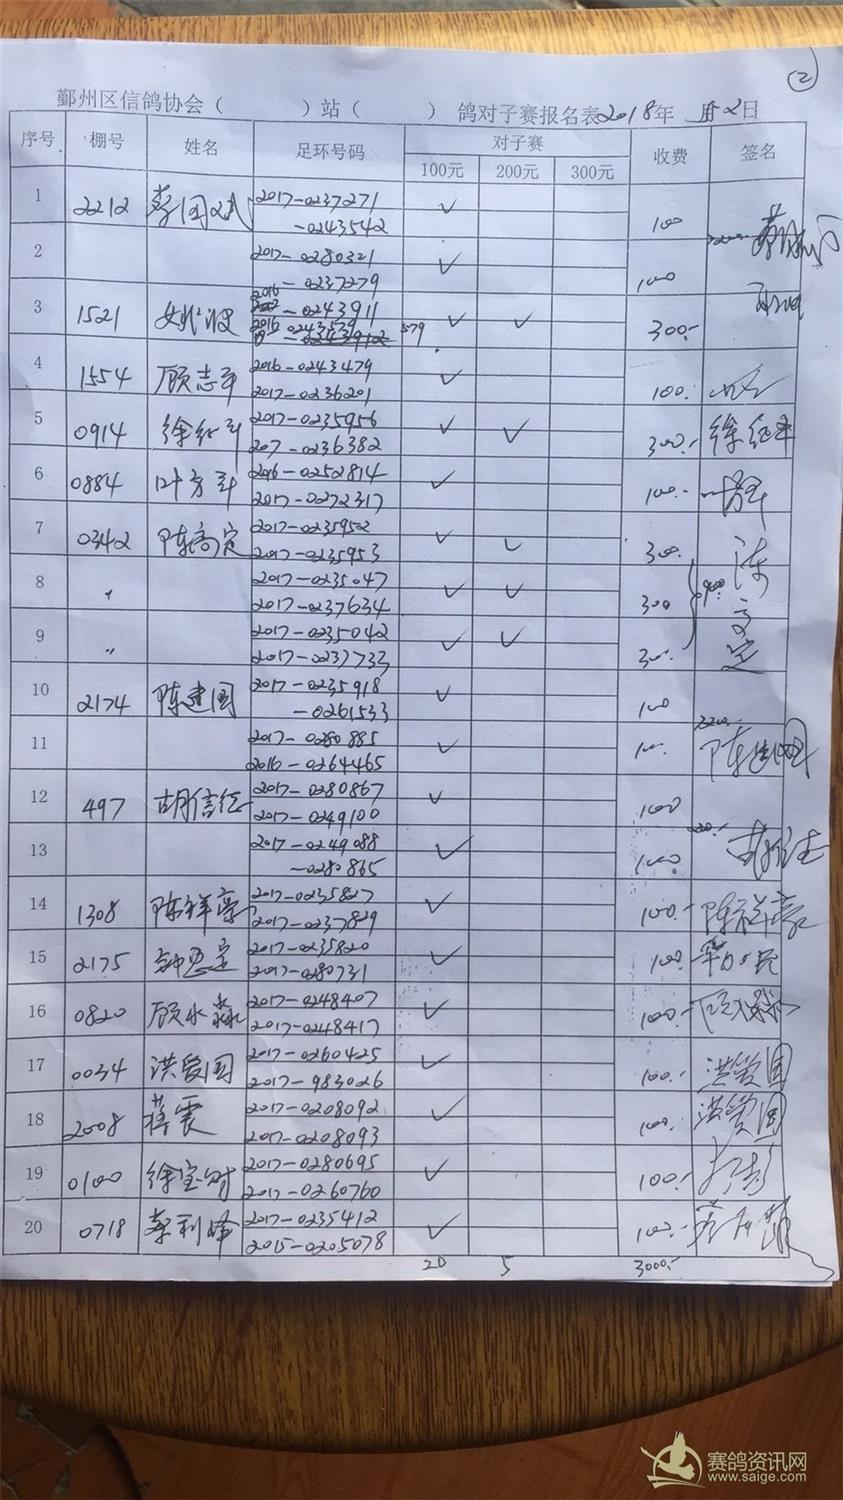 ②
鄞州区信鸽协会（ ）站（ ）鸽对子赛报名表2018年 月2日
序号 棚号 姓名 足环号码 对子赛 收费 签名
100元 200元 300元
1 2212 2017-0237271 ✓ 100
-0243542
2 2017-0280321 ✓ 100
-0237279
3 1521 姚波 2016-0243911 ✓ ✓ 300.-
2016 0243579 579
4 1554 顾志平 2016-0243479 ✓ 100.
2017-0236201
5 0914 徐红平 2017-0235956 ✓ ✓ 300.- 徐红平
207-0236382
6 0884 叶方平 2016-0252814 ✓ 100.-
2017-0272317
7 0342 陈高定 2017-0235952 ✓ ✓ 300.
2017-0235953
8 〃 2017-0235047 ✓ ✓ 300 900 陈高定
2017-0237634
9 〃 2017-0235042 ✓ ✓ 300.
2017-0237733
10 2174 陈建国 2017-0235918 ✓ 100
-0261533
11 2017-0280885 ✓ 100 200 陈建国
2016-0264465
12 497 2017-0280867 ✓ 100
2017-0249100
13 2017-0249088 ✓ 100 200
-0280865
14 1308 陈祥豪 2017-0235827 ✓ 100.- 陈祥豪
2017-0237829
15 2175 2017-0235820 ✓ 100.
2017-0280731
16 0820 顾水淼 2017-0248407 ✓ 100.-
2017-0248417
17 0034 洪爱国 2017-0260425 ✓ 100. 洪爱国
2017-983026
18 2008 蒋震 2017-0208092 ✓ 100. 洪爱国
2017-0208093
19 0100 徐宝财 2017-0280695 ✓ 100.-
2017-0260760
20 0718 蔡利峰 2017-0235412 ✓ 100.-
2015-0205078
20 5 3000.-
赛鸽资讯网
www.saige.com